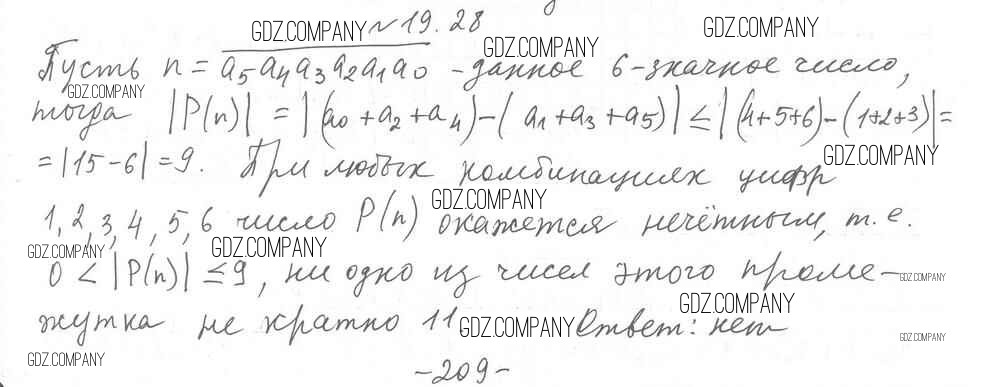 GDZ.COMPANY № 19.28 GDZ.COMPANY
GDZ.COMPANY
Пусть n = a5a4a3a2a1a0 - данное 6-значное число,
GDZ.COMPANY
тогда |P(n)| = |(a0+a2+a4)-(a1+a3+a5)| ≤ |(4+5+6)-(1+2+3)| =
GDZ.COMPANY
= |15-6| = 9. При любых комбинациях цифр
GDZ.COMPANY
1, 2, 3, 4, 5, 6 число P(n) окажется нечётным, т.е.
GDZ.COMPANY GDZ.COMPANY
0 < |P(n)| ≤ 9, ни одно из чисел этого проме-
GDZ.COMPANY
GDZ.COMPANY
жутка не кратно 11 GDZ.COMPANY Ответ: нет
GDZ.COMPANY
GDZ.COMPANY
-209-